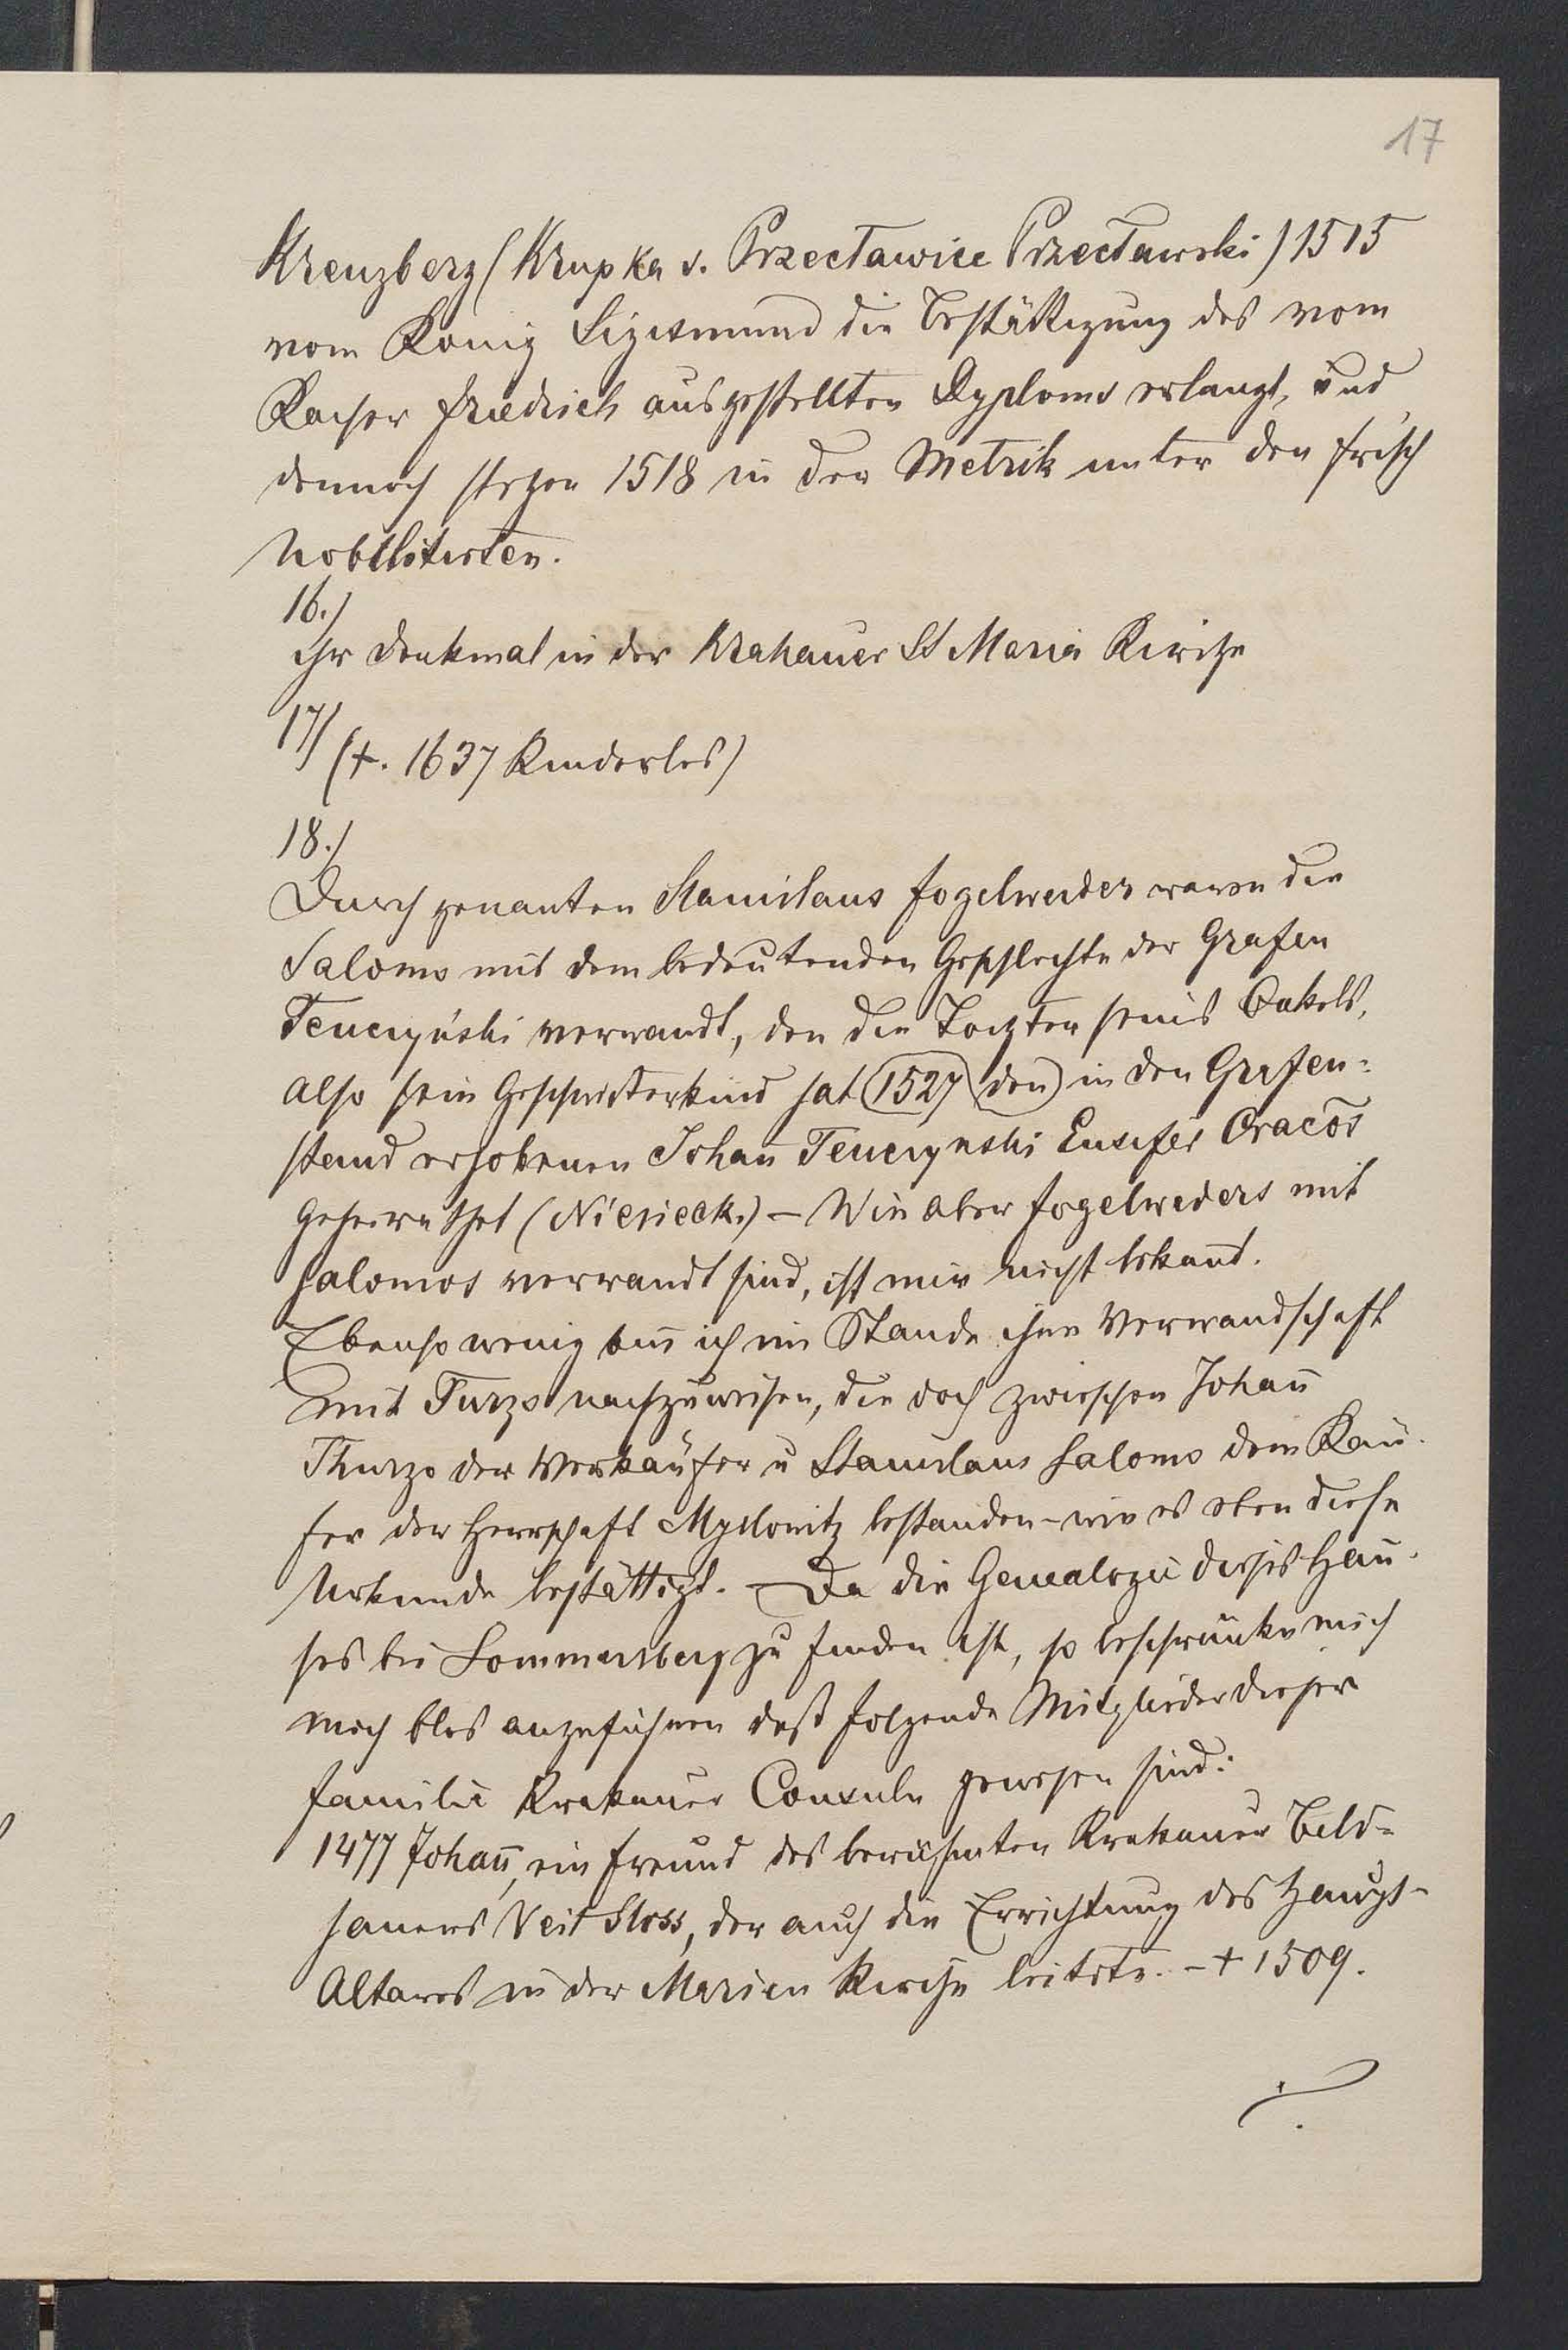 17
Kreuzberg (Krupka v. Przecławice Przecławski) 1515
vom König Sigismund die Bestättigung des vom
Kaiser Friedrich ausgestellten Dyploms erlangt, und
dennoch stehen 1518 in der Metrik unter den frisch
Nobilitirten.
16./
ihr Denkmal in der Krakauer St Maria Kirche
17/ (+. 1637 Kinderlos)
18./
Durch genanten Stanislaus Fogelweider waren die
Salomo mit dem bedeutenden Geschlechte der Grafen
Tenczyński verwandt, den die Tochter seines Onkels,
also sein Geschwisterkind hat 1527 den in den Grafen=
stand erhobenen Johañ Tenczynski Ensifer Cracõs
geheirathet (Niesieck.) – Wie aber Fogelweders mit
Salomos verwandt sind, ist mir nicht bekañt.
Ebenso wenig biñ ich im Stande ihre Verwandschaft
mit Turzo nachzuweisen, die doch zwischen Johañ
Thurzo der Verkäufer u Stanislaus Salomo dem Käu-
fer der Herrschaft Myslowitz bestanden – wie es eben diese
Urkunde bestättigt. – Da die Genealogie dieses Hau-
ses bei Sommersberg zu finden ist, so beschränke mich
noch blos anzuführen daß folgende Mitglieder dieser
Familie Krakauer Consuln gewesen sind:
1477 Johañ, ein Freund des berühmten Krakauer Bild=
hauers Veit Stoss, der auch die Errichtung des Haupt-
Altares in der Marien Kirche leitete. – + 1509.